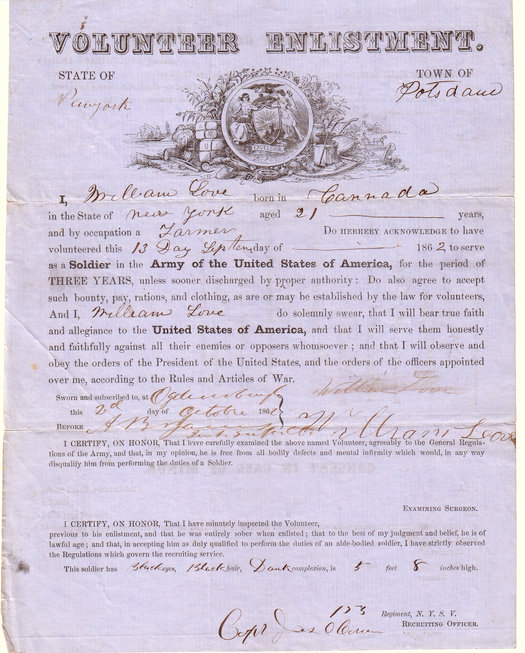 VOLUNTEER ENLISTMENT.
STATE OF
TOWN OF
Newyork
Potsdam
EXCELSIOR
I, William Love born in Cannada
in the State of New York aged 21 years,
and by occupation a Farmer Do HEREBY ACKNOWLEDGE to have
volunteered this 13 Day Septem day of 1862 to serve
as a Soldier in the Army of the United States of America, for the period of
THREE YEARS, unless sooner discharged by proper authority: Do also agree to accept
such bounty, pay, rations, and clothing, as are or may be established by the law for volunteers,
And I, William Love do solemnly swear, that I will bear true faith
and allegiance to the United States of America, and that I will serve them honestly
and faithfully against all their enemies or opposers whomsoever; and that I will observe and
obey the orders of the President of the United States, and the orders of the officers appointed
over me, according to the Rules and Articles of War.
Sworn and subscribed to, at Ogdensburgh William Love
this 2d day of Octobre 1862
BEFORE A B William Love
I CERTIFY, ON HONOR, That I have carefully examined the above named Volunteer, agreeably to the General Regula-
tions of the Army, and that, in my opinion, he is free from all bodily defects and mental infirmity which would, in any way
disqualify him from performing the duties of a Soldier.
EXAMINING SURGEON.
I CERTIFY, ON HONOR, That I have minutely inspected the Volunteer,
previous to his enlistment, and that he was entirely sober when enlisted; that to the best of my judgment and belief, he is of
lawful age; and that, in accepting him as duly qualified to perform the duties of an able-bodied soldier, I have strictly observed
the Regulations which govern the recruiting service.
This soldier has Black eyes, Black hair, Dark complexion, is 5 feet 8 inches high.
Regiment, N. Y. S. V.
Capt Jas
RECRUITING OFFICER.